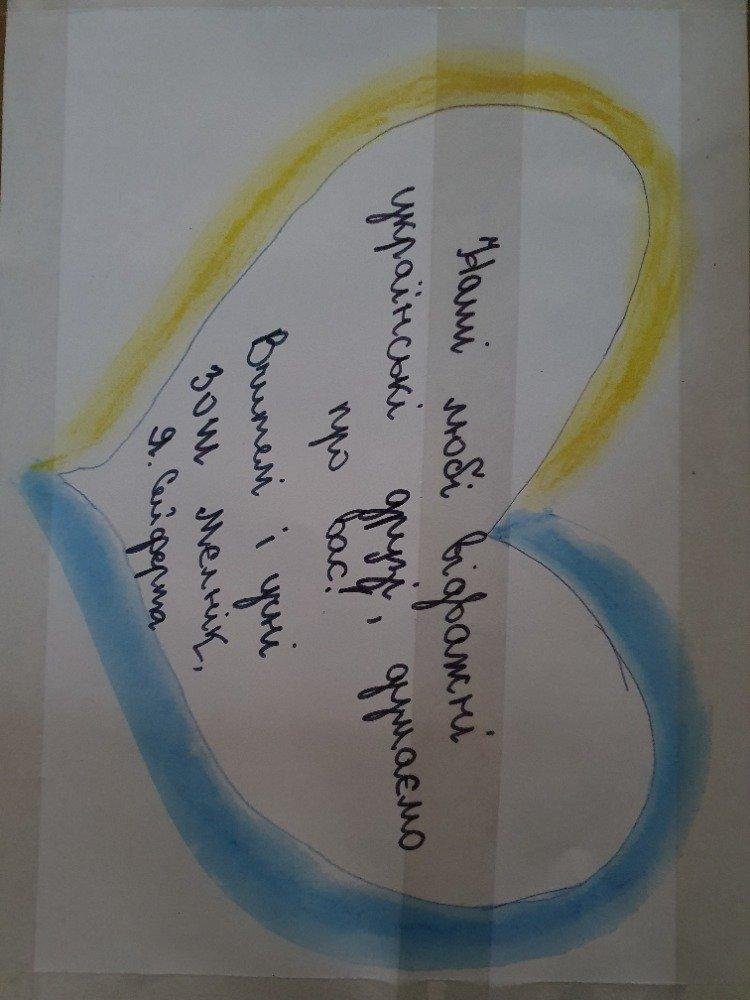 Наші любі відважні
українські друзі, думаємо
про вас!
Вчителі і учні
ЗОШ Мєлнік,
Я. Сейферта